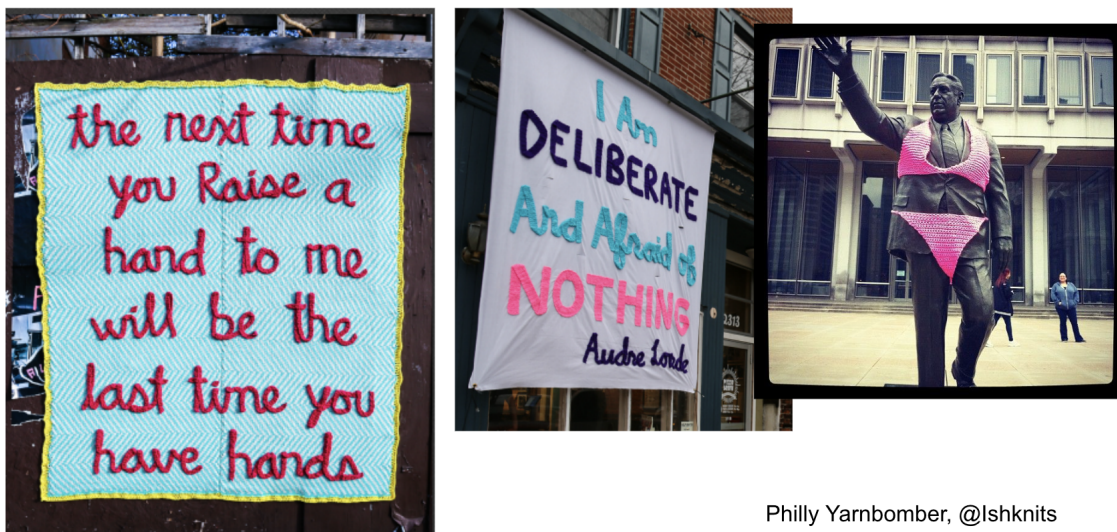 the next time
you Raise a
hand to me
will be the
last time you
have hands
I Am
DELIBERATE
And Afraid of
NOTHING
Audre Lorde
2313
Philly Yarnbomber, @Ishknits